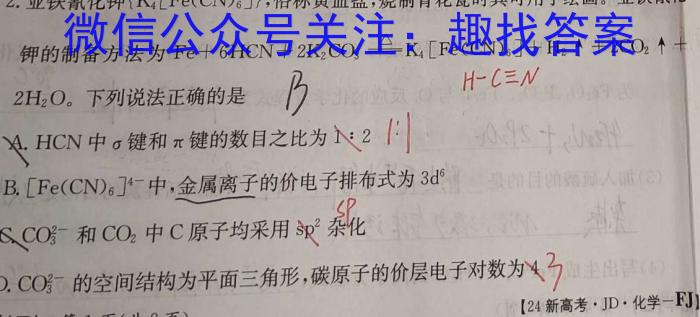 2. 亚铁氰化钾{K₄[Fe(CN)₆]},俗称黄血盐,烧制青花瓷时可用于绘画。
微信公众号关注:趣找答案
钾的制备方法为 Fe+6HCN+2K₂CO₃══K₄[Fe(CN)₆]+H₂↑+2CO₂↑+
2H₂O。下列说法正确的是 B H-C≡N
A. HCN 中 σ 键和 π 键的数目之比为 1∶2 1:1
B. [Fe(CN)₆]⁴⁻ 中,金属离子的价电子排布式为 3d⁶
C. CO₃²⁻ 和 CO₂ 中 C 原子均采用 sp² 杂化 sp
D. CO₃²⁻ 的空间结构为平面三角形,碳原子的价层电子对数为 4 3
【24 新高考·JD·化学-FJ】